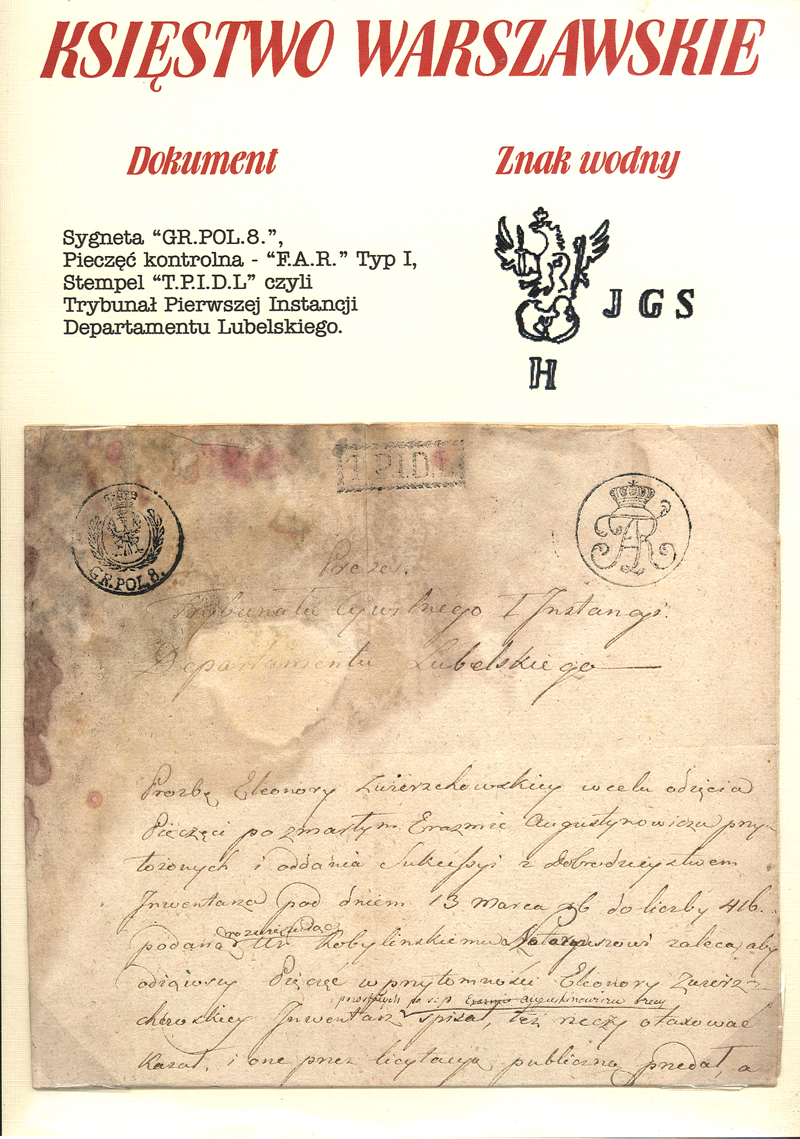 KSIĘSTWO WARSZAWSKIE
Dokument
Znak wodny
Sygneta “GR.POL.8.”,
Pieczęć kontrolna - “F.A.R.” Typ I,
Stempel “T.P.I.D.L” czyli
Trybunał Pierwszej Instancji
Departamentu Lubelskiego.
J G S
H
T.P.I.D.L
GR.POL.8.
FAR
Prezes.
Trybunału Cywilnego I Instancyi.
Departamentu Lubelskiego
Prozbę Eleonory w celu odjęcia
Pieczęci po zmarłym Erazmie Augustynowiczu przy-
łozonych i oddania Sukcessyi z Dobrodzieystwem
Inwentarza pod dniem 13 Marca do liczby 416.
rozurządzać
podaną Ur Kobylinskiemu zaleca, aby
odiąwszy Pięczęc w przytomności Eleonory Zwierz-
pozostałych po ś: p Erazmie Augustinowiczu
chowskiey Inwentarz spisał, też rzeczy otaxować
kazał, i one przez licytacyą publiczną przedał, a